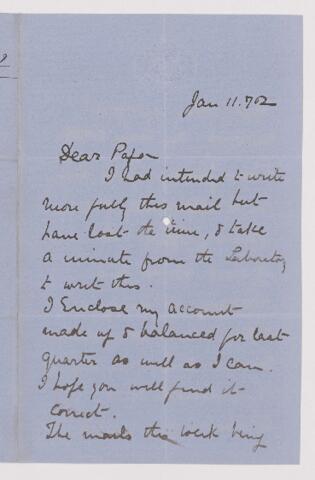 Jan 11. 702
Dear Papa
I had intended to write
more fully this mail but
have lost the time, & take
a minute from the Laboratory
to write this.
I Enclose my account
made up & balanced for last
quarter as well as I can.
I hope you will find it
correct.
The mails this week being